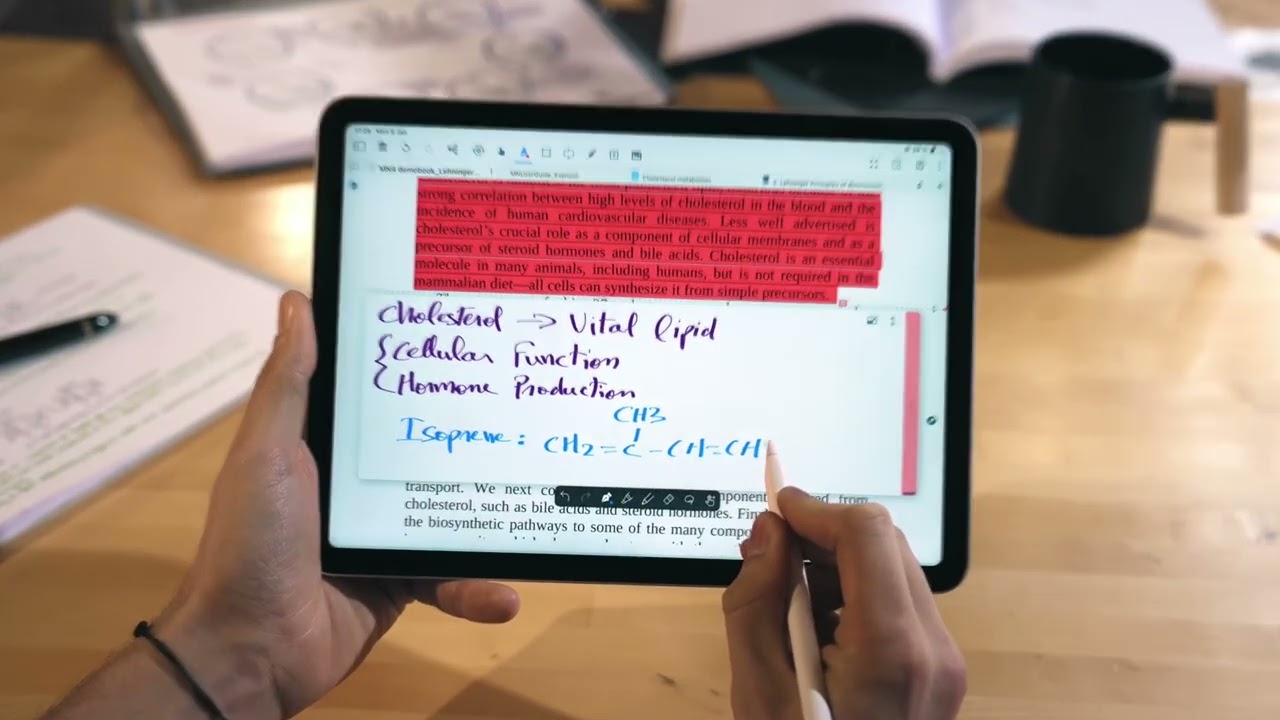 MNA demobook_Lehninger...
Cholesterol metabolism
strong correlation between high levels of cholesterol in the blood and the
incidence of human cardiovascular diseases. Less well advertised is
cholesterol's crucial role as a component of cellular membranes and as a
precursor of steroid hormones and bile acids. Cholesterol is an essential
molecule in many animals, including humans, but is not required in the
mammalian diet—all cells can synthesize it from simple precursors.
Cholesterol → Vital lipid
{Cellular Function
Hormone Production
CH3
Isoprene: CH2=C-CH=CH
transport. We next
cholesterol, such as bile acids and steroid hormones.
the biosynthetic pathways to some of the many